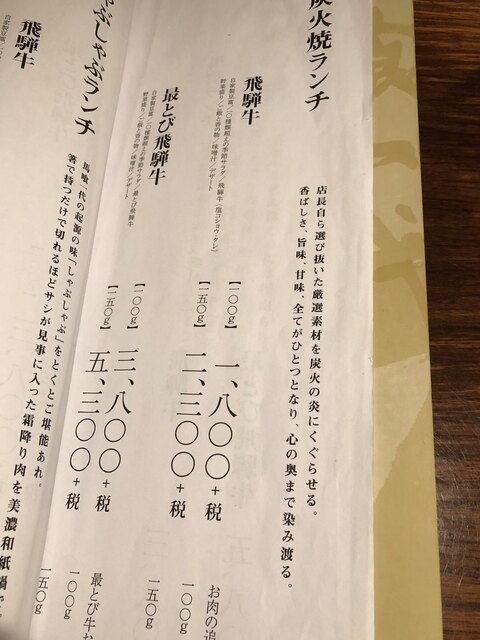 炭火焼ランチ
店長自ら選び抜いた厳選素材を炭火の炎にくぐらせる。
香ばしさ、旨味、甘味、全てがひとつとなり、心の奥まで染み渡る。
飛騨牛
自家製豆富/一〇種類超えの季節サラダ/飛騨牛(塩コショウ・タレ)
野菜盛り/ご飯と香の物/味噌汁/デザート
【一〇〇g】 一、八〇〇+税
【一五〇g】 二、三〇〇+税
お肉の追
一〇〇g
一五〇g
最とび飛騨牛
自家製豆富/一〇種類超えの季節サラダ/最とび飛騨牛
野菜盛り/ご飯と香の物/味噌汁/デザート
【一〇〇g】 三、八〇〇+税
【一五〇g】 五、三〇〇+税
最とび牛お
一〇〇g
一五〇g
ぶしゃぶランチ
馬喰一代の起源の味「しゃぶしゃぶ」をとくとご堪能あれ。
箸で持つだけで切れるほどサシが見事に入った霜降り肉を美濃和紙鍋で。
飛騨牛